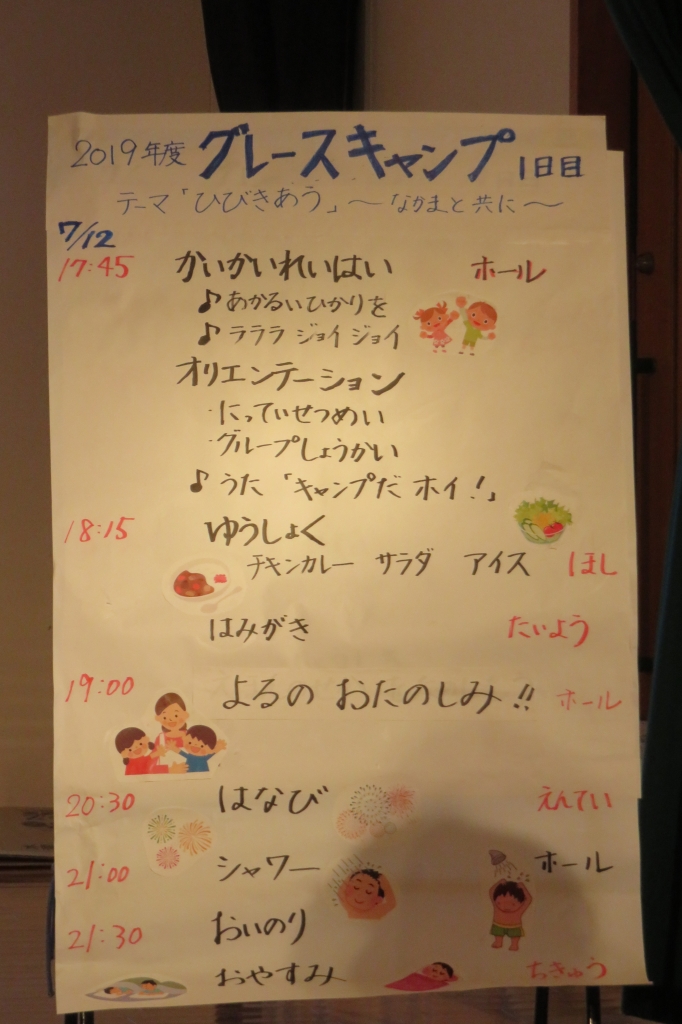 2019年度 グレースキャンプ 1日目
テーマ「ひびきあう」〜なかまと共に〜
7/12
17:45 かいかいれいはい ホール
♪あかるいひかりを
♪ラララ ジョイ ジョイ
オリエンテーション
・にっていせつめい
・グループしょうかい
♪うた「キャンプだ ホイ!」
18:15 ゆうしょく
チキンカレー サラダ アイス ほし
はみがき たいよう
19:00 よるの おたのしみ!! ホール
20:30 はなび えんてい
21:00 シャワー ホール
21:30 おいのり
おやすみ ちきゅう